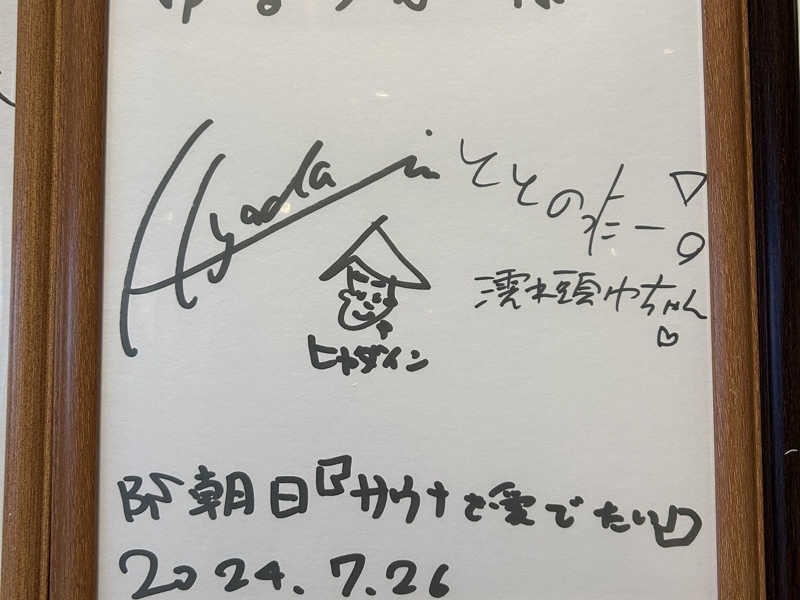 Hyadain
ととのったー!
濡れ頭巾ちゃん
ヒャダイン
BS朝日『サウナを愛でたい』
2024.7.26